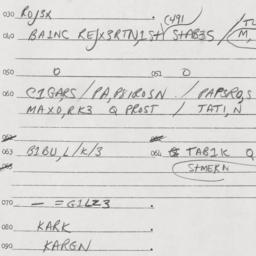 030 ROJ3X
040 BAINC REJX3RTN,1ST / STAB3S / M,
(491
050 O 051 O
060 CIGARS / PA,PEIROSN / PAPSRO,S
MAXO,RK3 Q PROST / TATI,N
063 BIBU,L/K/3 064 TABIK Q
STMERN
070 — = G1LZ3
080 KARK
090 KARGN